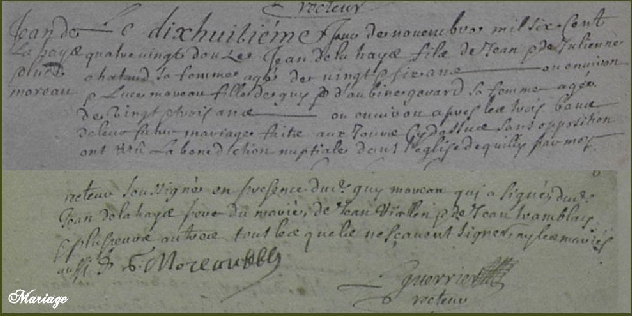 recteur
Jean de Le dixhuitiéme Jour de novembre mil six cent
La haye quatre vingt douze Jean delahaye fils de Jean & de Julienne
& luce chatard sa femme agé de vingt six ans ou environ
moreau & luce moreau fille de guy & d'aubine geuard sa femme agée
de vingt trois ans ou environ apres les trois bans
de leur futur mariage faits aux Jours sans opposition
ont reçu La benediction nuptiale dans l'eglise de quilly par moy
recteur soussigné en presence du d. guy moreau qui a signé, du d.
Jean delahaye pere du marié, de Jean & de Jean tramblais
& plusieurs autres tous lesquels ne sçauent signer, ny les mariés
aussi G. Moreau
guerrier
recteur
Mariage